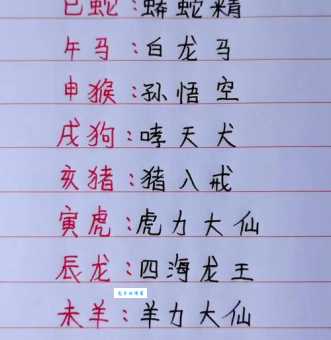 巳蛇:蟒蛇精
午马:白龙马
申猴:孙悟空
戌狗:哮天犬
亥猪:猪八戒
寅虎:虎力大仙
辰龙:四海龙王
未羊:羊力大仙